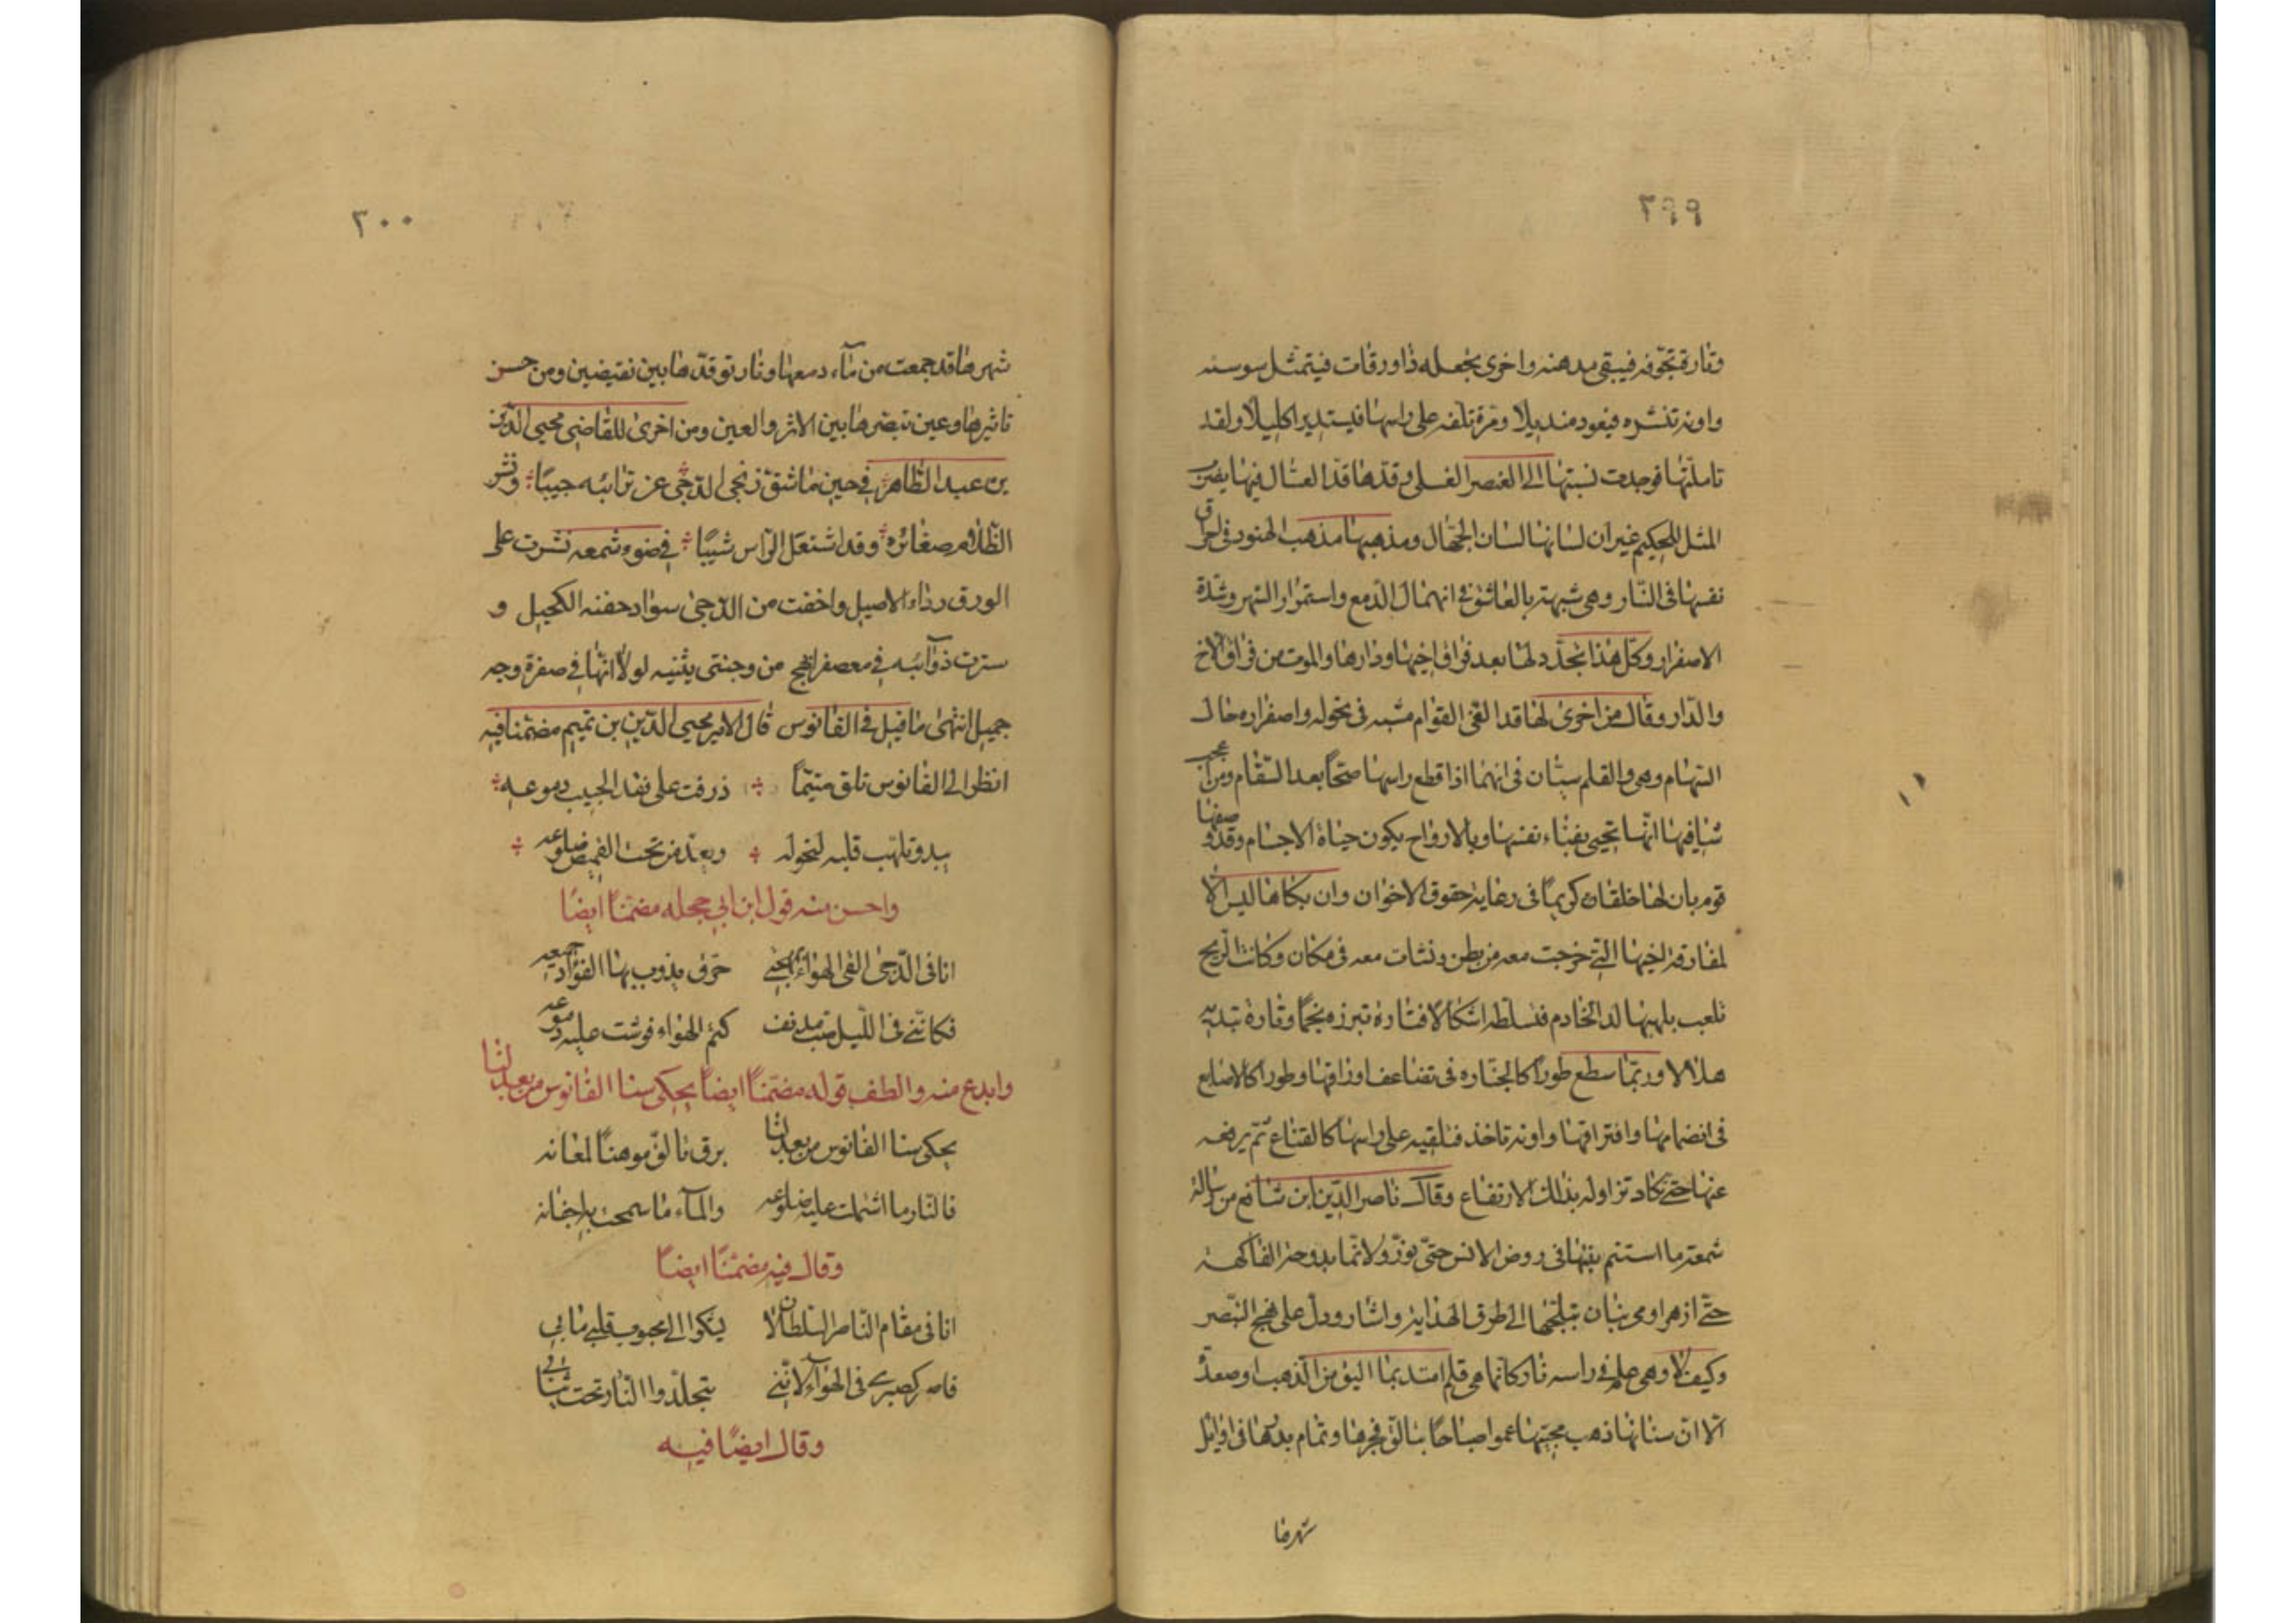 ٢٩٩
وتارة تجوّفه فيبقى مدهنه واخرى تجعله ذا ورقات فيتمثل سوسنه
واونه تنشره فيعود منديلا ومرّة تلفه على راسها فيستدير اكليلا ولقد
تاملتها فوجدت نسبتها الى العنصر العسلى وقدّها قدّ العسّال فيها يضرب
المثل للحكيم غير ان لسانها لسان الجهّال ومذهبها مذهب الهنود فى احراق
نفسها فى النّار وهى شبيهة بالعاشق فى انهمال الدّمع واستمرار السّهر وشدّة
الاصفرار وكلّ هذا تجدّد لها بعد فراق اخيها ودارها والموت من فراق الاخ
والدّار وقال من اخرى لها قد الفى القوام مشبه فى نحوله واصفراره حال
السّهام وهى والقلم سيّان فى انهما اذا قطع راسها صحّا بعد السّقام ومن عجب
شافيها انّها تحيى بفناء نفسها وبالارواح يكون حياة الاجسام وقد وصفها
قوم بان لها خلقان كريمًا فى رعاية حقوق الاخوان وان بكاها ليس الا
لمفارقة اخيها التى خرجت معه من بطن ونشات معه فى مكان وكانت الريح
تلعب بلهبها لدى الخادم فتسلطه اشكالا فتارة تبرزه نجمًا وتارة تبديه
هلالا وربّما سطع طورًا كالجلناره فى تضاعف اوراقها وطورا كالاصابع
فى انضمامها وافتراقها واونة تاخذ فتلقيه على راسها كالقناع ثمّ يرفعه
عنها حتى تكاد تزاوله بذلك الارتفاع وقال ناصر الدّين ابن شافع من رسالة
شمعة ما استنم نبتها فى روض الانس حتّى نوّر ولا نما بدوحة الفاكهة
حتّى ازهر اومى بنان تبلجها الى طرق الهداية واشار ودلّ على نهج التبصر
وكيف لا وهى علم فى راسه نار كانّما هى قلم امتد بما اليق من الذهب او صعدة
الا انّ سنانها ذهب محجتها عموا صباحًا بتالّق فجرها وتمام بدرها فى اوايل
شهرها
٣٠٠
شهرها قد جمعت من ماء دمعها ونار توقدّها بين نقيضين ومن حسن
تاثيرها وعين تبصرها بين الاثر والعين ومن اخرى للقاضى محيى الدّين
بن عبد الظّاهر فى حين ما شقّ زنجى الدّجى عن ترائبه جيبًا ونشر
الظّلام صفائره وقد اشتعل الرّاس شيبًا فى ضوء شمعه نشرت على
الورق رداء الاصيل واخفت من الدّجى سواد جفنه الكحيل و
سترت ذوآئبه فى معصفر انهج من وجنتى بثنيه لولا انّها فى صفرة وجه
جميل انتهى ما قيل فى الفانوس قال الامير محيى الدّين بن تميم مضمّنا فيه
انظر الى الفانوس تلق متيّمًا ذرفت على فقد الحبيب دموعه
يبدو تلهّب قلبه لنحوله وتعدّ من تحت القميص ضلوعه
واحسن منه قول ابن ابى حجله مضمّنًا ايضًا
انا فى الدّجى الفى الهواء بمهجتى حرق يذوب بها الفؤاد جميعه
فكانّنى فى اللّيل صبّ مدنف كتم الهواء فوشت عليه دموعه
وابدع منه والطف قوله مضمّنًا ايضًا يحكى سنا الفانوس من بعد لنا
يحكى سنا الفانوس من بعد لنا برق تالّق موهنًا لمعانه
فالنّار ما اشتملت عليه ضلوعه والمآء ما سمحت به اجفانه
وقال فيه مضمّنًا ايضًا
انا فى مقام النّاصر السلطان لا يشكوا الى محبوب قلبى ما بى
فاصر كصبرى فى الهوآء لانّنى بتجلّد والنّار تحت ثيابى
وقال ايضًا فيه